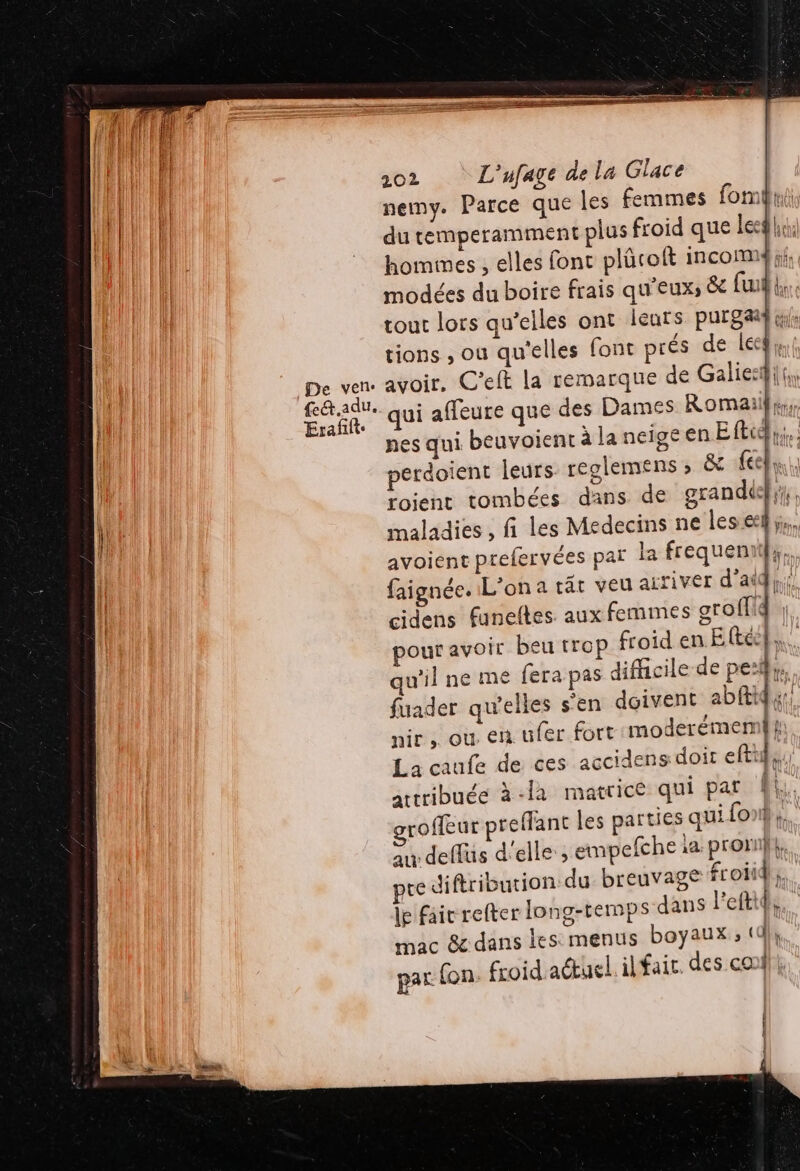 202 L'uſage de la Glace
nemy. Parce que les femmes
du temperamment plus froid que
hommes, elles ſont plûtoſt
modées du boire frais qu'eux, &
tout lors qu'elles ont leurs
tions, ou qu'elles ſont prés de
De ven. avoir. C'eſt la remarque de
ſect. adu. qui aſſeure que des Dames
Eraſiſt. nes qui beuvoient à la neige en
perdoient leurs reglemens, &
roient tombées dans de
maladies, ſi les Medecins ne les
avoient preſervées par la
ſaignée. L'on a tāt veu arriver
cidens funeſtes aux femmes
pour avoir beu trop froid en
qu'il ne me ſera pas difficile de
ſuader qu'elles s'en doivent
nir, ou en uſer fort
La cauſe de ces accidens doit
attribuée à la matrice qui par
groſſeur preſſant les parties qui
au deſſus d'elle, empeſche la
pte diſtribution du breuvage
le fait reſter long-temps dans
mac & dans les menus boyaux,
par ſon froid actuel il fait des